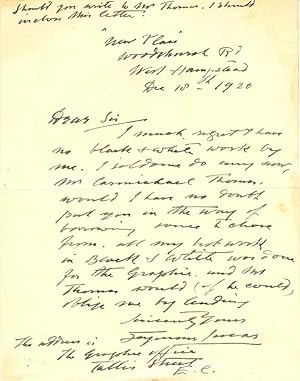 Should you write to Mr Thomas, I should
inclose this letter.
"New Place"
Woodchurch Rd
West Hampstead
Dec 18th 1920
Dear Sir
I much regret I have
no black & white work by
me. I seldom do any now,
Mr Carmichael Thomas,
would I have no doubt
put you in the way of
borrowing some to chose
from. all my best work
in Black & White was done
for the Graphic. and Mr
Thomas would (if he could,
oblige me by lending
Sincerely Yours
Seymour Lucas
The address is
The Graphic office
Tallis Street
E.C.